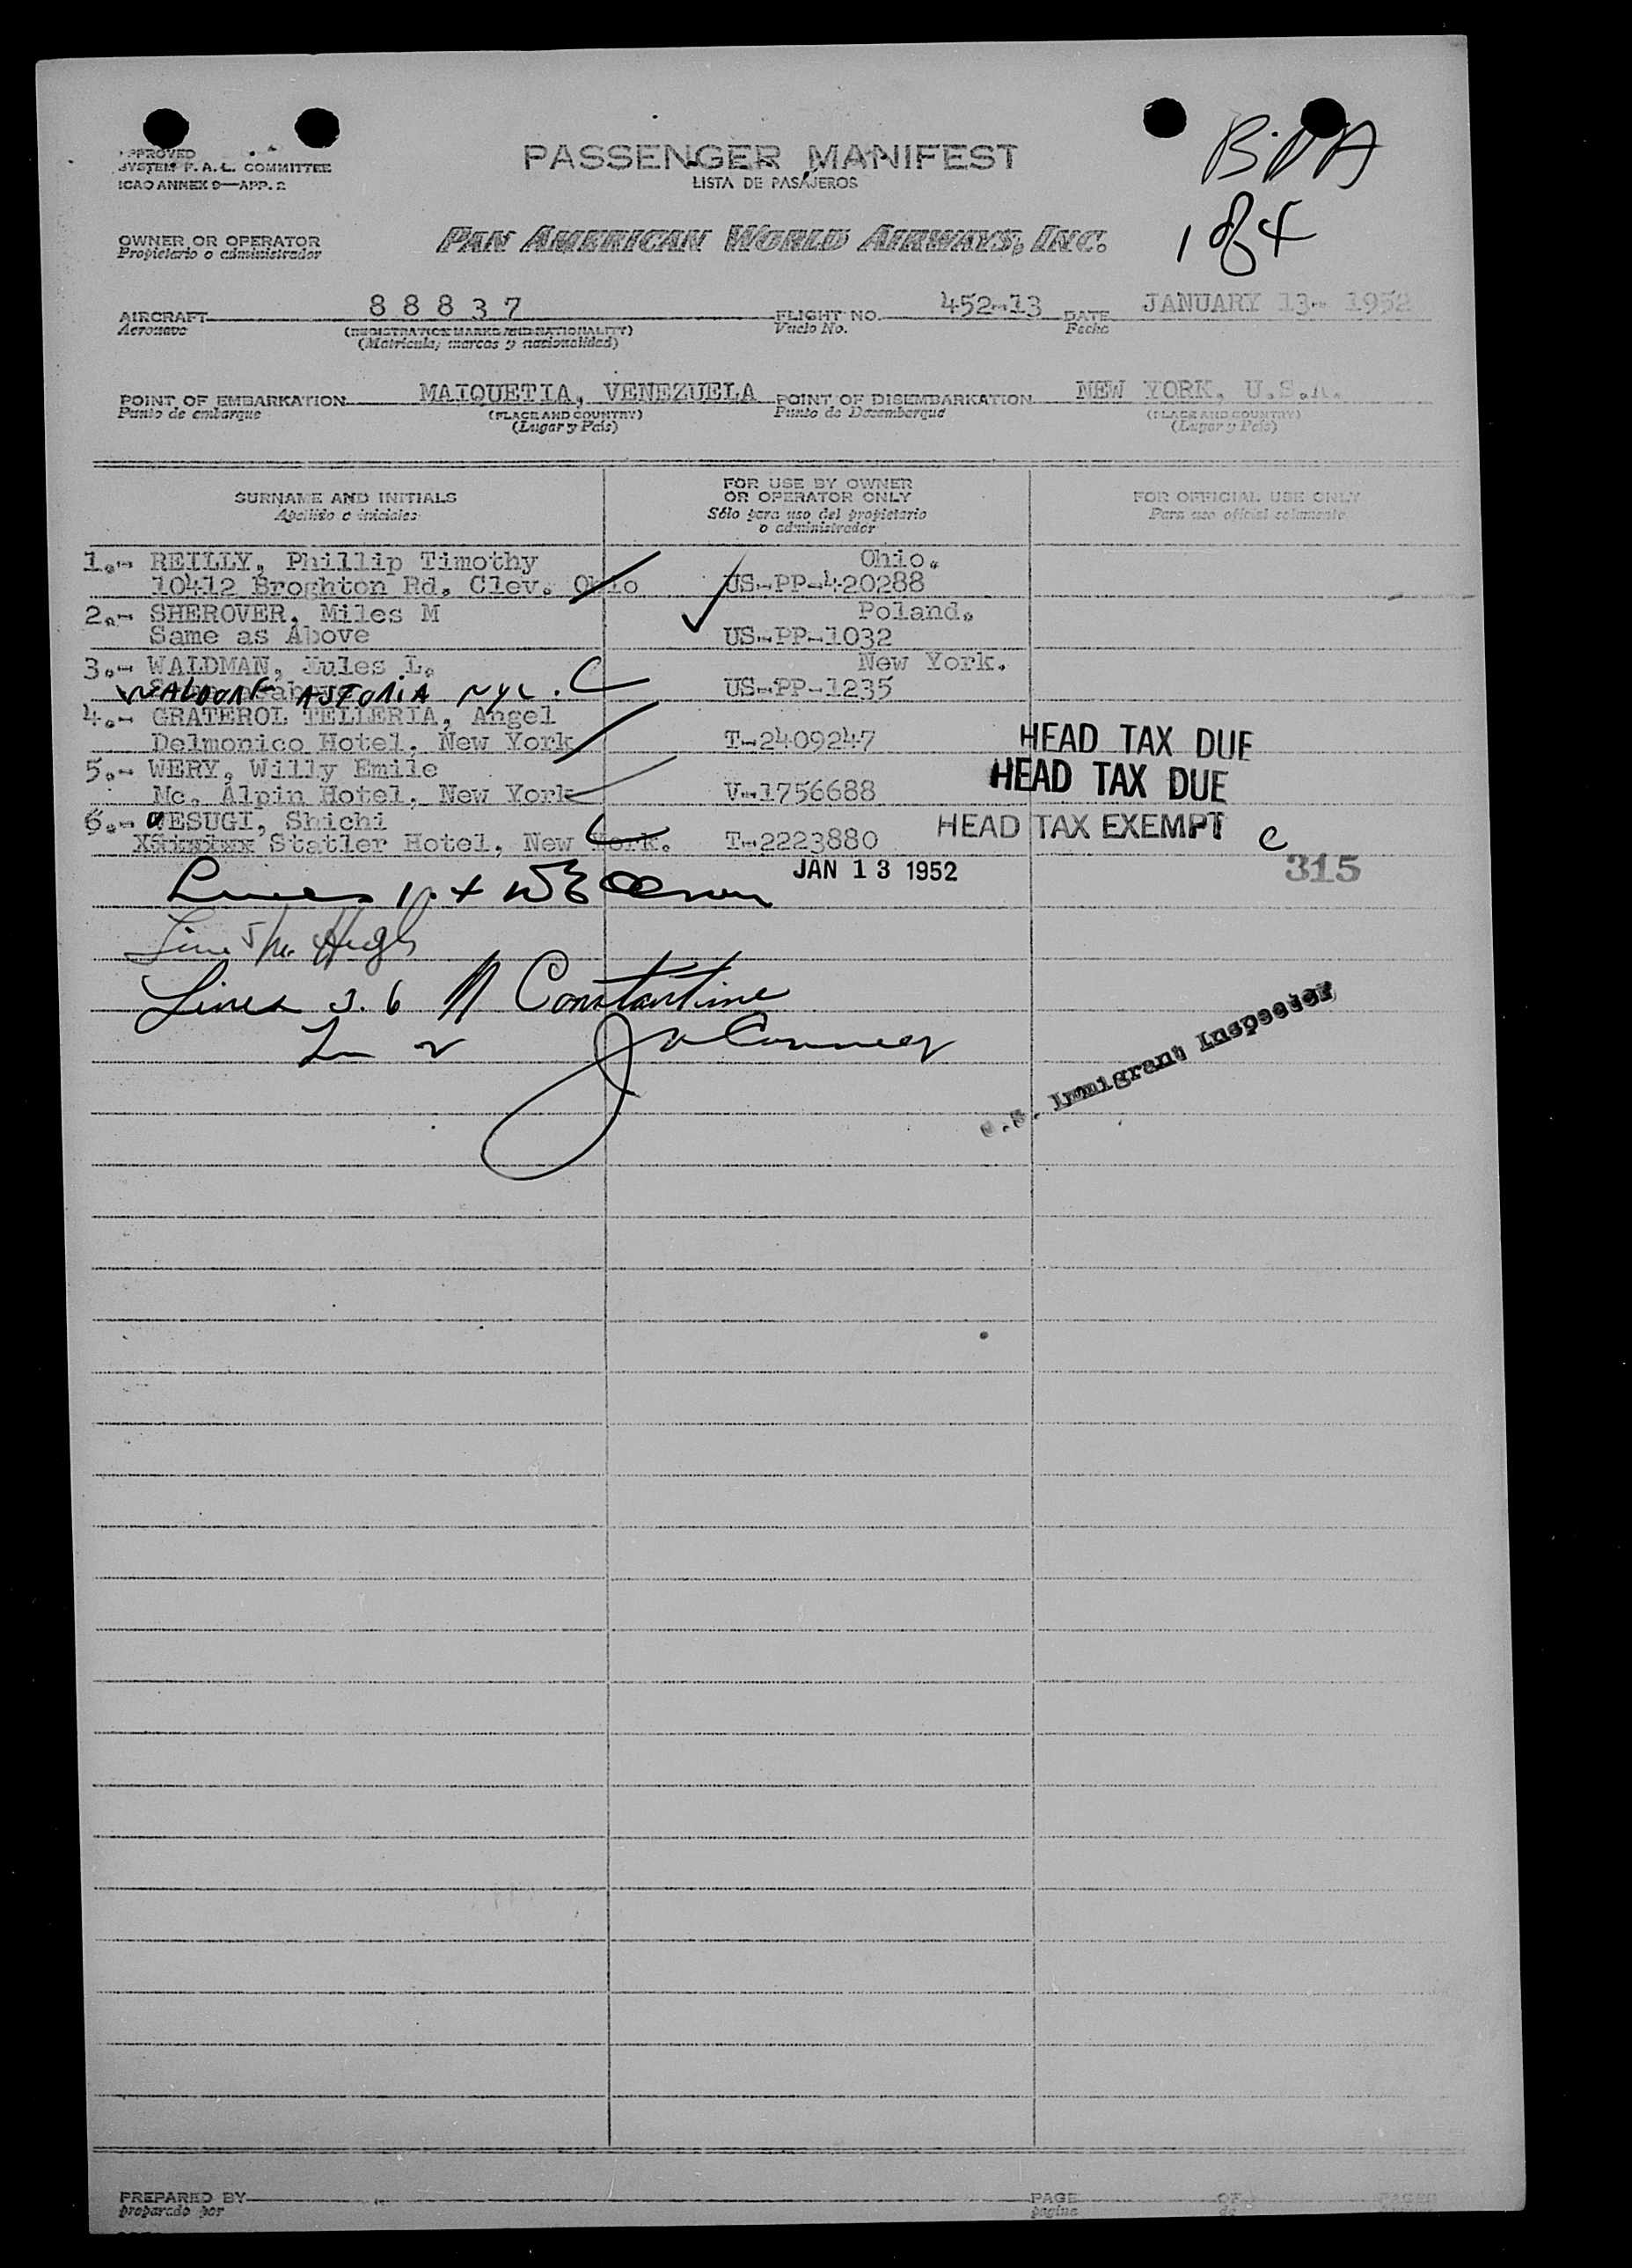 B.D.A
APPROVED
SYSTEM F.A.L. COMMITTEE
ICAO ANNEX 9—APP. 2
PASSENGER MANIFEST
LISTA DE PASAJEROS
1 of 4
OWNER OR OPERATOR
Propietario o administrador
PAN AMERICAN WORLD AIRWAYS, INC.
AIRCRAFT 88837 FLIGHT NO. 452-13 DATE JANUARY 13- 1952
Aeronave (REGISTRATION MARKS AND NATIONALITY) Vuelo No. Fecha
(Matricula, marcas y nacionalidad)
POINT OF EMBARKATION MAIQUETIA, VENEZUELA POINT OF DISEMBARKATION NEW YORK, U.S.A.
Punto de embarque (PLACE AND COUNTRY) Punto de Desembarque (PLACE AND COUNTRY)
(Lugar y País) (Lugar y País)
SURNAME AND INITIALS
Apellido e iniciales
FOR USE BY OWNER
OR OPERATOR ONLY
Sólo para uso del propietario
o administrador
FOR OFFICIAL USE ONLY
Para uso oficial solamente
1.- REILLY, Phillip Timothy Ohio.
10412 Broghton Rd, Clev. Ohio US-PP-420288
2.- SHEROVER, Miles M Poland.
Same as Above US-PP-1032
3.- WALDMAN, Jules L. New York.
WALDORF ASTORIA NYC. US-PP-1235
4.- GRATEROL TELLERIA, Angel
Delmonico Hotel, New York T-2409247 HEAD TAX DUE
5.- WERY, Willy Emile
Mc. Alpin Hotel, New York V-1756688 HEAD TAX DUE
6.- UESUGI, Shichi
Statler Hotel, New York. T-2223880 HEAD TAX EXEMPT C
JAN 13 1952 315
Lines 1. 4
Line 5
Lines 3. 6 N Constantine
Ln 2
U.S. Immigrant Inspector
PREPARED BY PAGE OF PAGES
preparado por pagina de